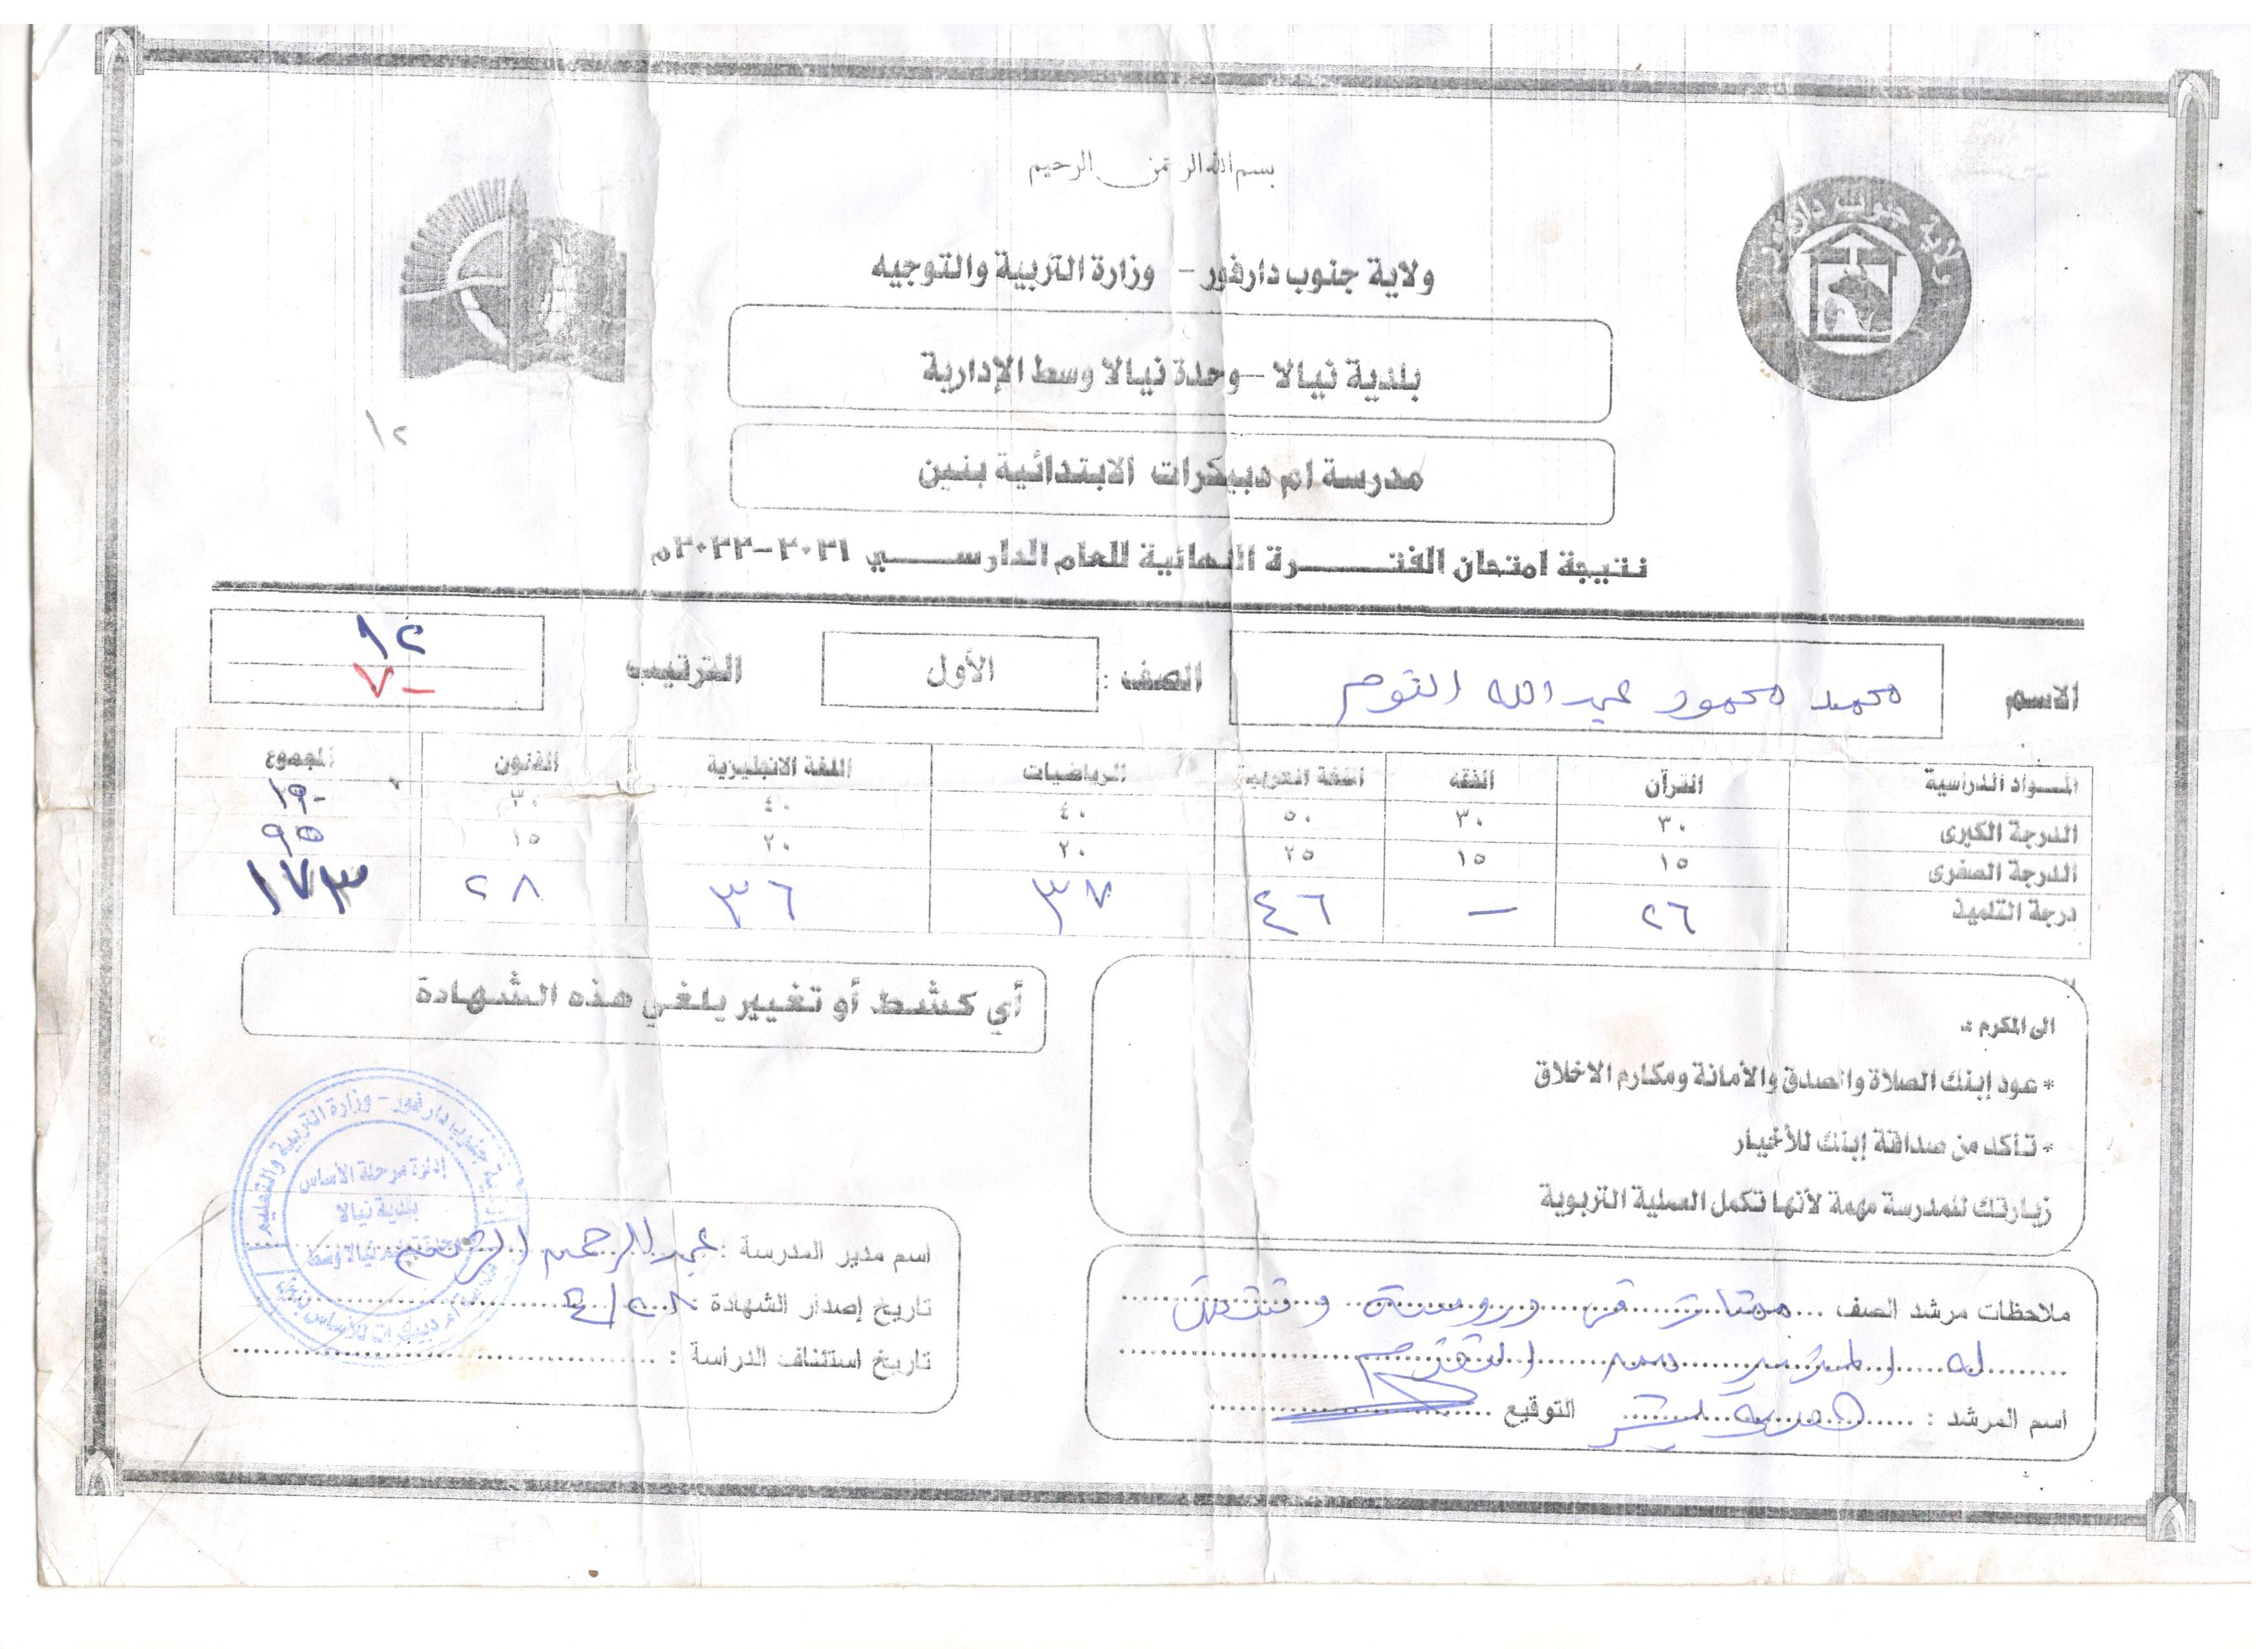 بسم الله الرحمن الرحيم
ولاية جنوب دارفور
ولاية جنوب دارفور - وزارة التربية والتوجيه
بلدية نيالا - وحدة نيالا وسط الإدارية
١٢
مدرسة ام دبيكرات الابتدائية بنين
نتيجة امتحان الفترة النهائية للعام الدارسي ٢٠٢١-٢٠٢٢م
الاسم محمد محمود عبدالله التوم الصف : الأول الترتيب ١٢
٧٠
المواد الدراسية القرآن الفقه اللغة العربية الرياضيات اللغة الانجليزية الفنون المجموع
الدرجة الكبرى ٣٠ ٣٠ ٥٠ ٤٠ ٤٠ ٣٠ ١٩٠
الدرجة الصغرى ١٥ ١٥ ٢٥ ٢٠ ٢٠ ١٥ ٩٥
درجة التلميذ ٢٦ — ٤٦ ٣٧ ٣٦ ٢٨ ١٧٣
أي كشط أو تغيير يلغي هذه الشهادة
الى المكرم :-
* عود إبنك الصلاة والصدق والأمانة ومكارم الاخلاق
* تأكد من صداقة إبنك للأخيار
زيارتك للمدرسة مهمة لأنها تكمل العملية التربوية
ملاحظات مرشد الصف ... ممتاز في دروسه ونتمنى
له المزيد من التقدم
اسم المرشد : التوقيع
اسم مدير المدرسة : عبدالرحمن
تاريخ إصدار الشهادة : ٢٨/٤
تاريخ استئناف الدراسة :
ولاية جنوب دارفور - وزارة التربية والتعليم
إدارة مرحلة الأساس
بلدية نيالا
نيالا وسط